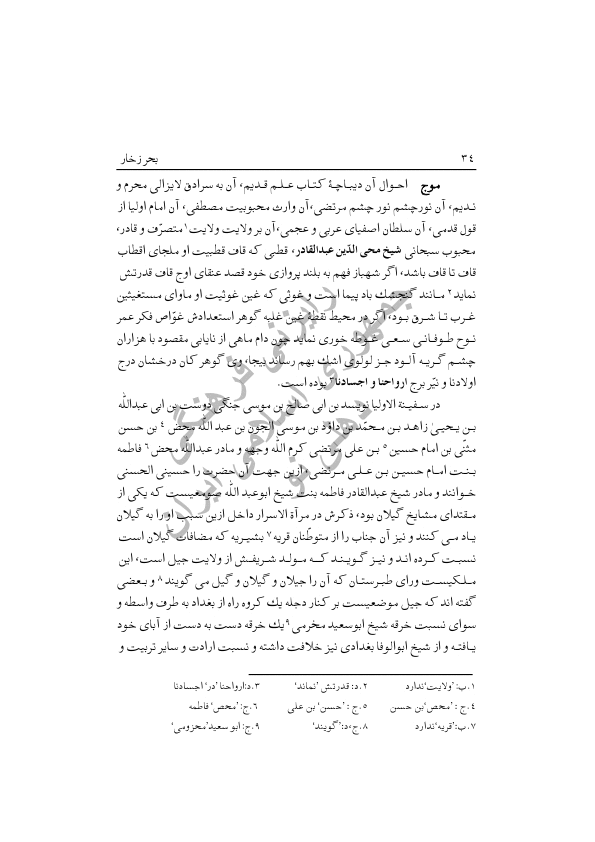 ۳۴ بحر زخار
موج احوال آن دیباچهٔ کتاب علم قدیم، آن به سرادق لایزالی محرم و
ندیم، آن نورچشم نور چشم مرتضی، آن وارث محبوبیت مصطفی، آن امام اولیا از
قول قدمی، آن سلطان اصفیای عربی و عجمی، آن بر ولایت ولایت۱ متصرّف و قادر،
محبوب سبحانی شیخ محی الدّین عبدالقادر، قطبی که قاف قطبیت او ملجای اقطاب
قاف تا قاف باشد، اگر شهباز فهم به بلند پروازی خود قصد عنقای اوج قاف قدرتش
نماید۲ مانند گنجشك باد پیما است و غوثی که غین غوثیت او ماوای مستغیثین
غرب تا شرق بود، اگر در محیط نقطهٔ غین غلبه گوهر استعدادش غوّاص فکر عمر
نوح طوفانی سعی غوطه خوری نماید چون دام ماهی از نایابی مقصود با هزاران
چشم گریه آلود جز لولوی اشك بهم رساند بیجا، وی گوهر کان درخشان درج
اولادنا و نیّر برج ارواحنا و اجسادنا۳ بوده است.
در سفینة الاولیا نویسد بن ابی صالح بن موسی جنگی دوست بن ابی عبدالله
بن یحییٰ زاهد بن محمّد بن داؤد بن موسی الجون بن عبد الله محض ۴ بن حسن
مثنّی بن امام حسین ۵ بن علی مرتضی کرم الله وجهه و مادر عبدالله محض ۶ فاطمه
بنت امام حسین بن علی مرتضی، ازین جهت آن حضرت را حسینی الحسنی
خوانند و مادر شیخ عبدالقادر فاطمه بنت شیخ ابوعبد الله صومعیست که یکی از
مقتدای مشایخ گیلان بود، ذکرش در مرآة الاسرار داخل ازین سبت او را به گیلان
یاد می کنند و نیز آن جناب را از متوطّنان قریه۷ بشیریه که مضافات گیلان است
نسبت کرده اند و نیز گویند که مولد شریفش از ولایت جیل است، این
ملکیست ورای طبرستان که آن را جیلان و گیلان و گیل می گویند ۸ و بعضی
گفته اند که جیل موضعیست بر کنار دجله یك کروه راه از بغداد به طرف واسطه و
سوای نسبت خرقه شیخ ابوسعید مخرمی۹ یك خرقه دست به دست از آبای خود
یافته و از شیخ ابوالوفا بغدادی نیز خلافت داشته و نسبت ارادت و سایر تربیت و
۱.ب: ’ولایت‘ندارد ۲.د: قدرتش ’نماند‘ ۳.د:ارواحنا ’در‘ اجسادنا
۴.ج : ’محص‘بن حسن ۵.ج : ’حسن‘ بن علی ۶.ج: ’محص‘ فاطمه
۷.ب:’قریه‘ندارد ۸.ج،د:’گویند‘ ۹.ج: ابو سعید’مخزومی‘